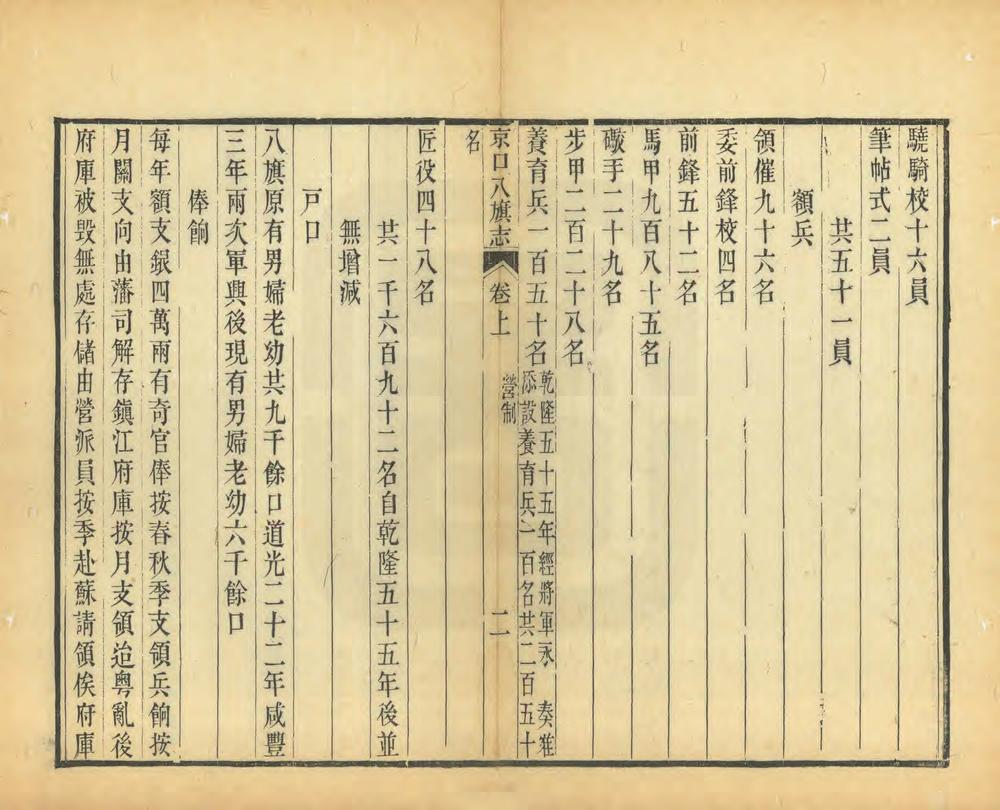 驍騎校十六員
筆帖式二員
共五十一員
額兵
領催九十六名
委前鋒校四名
前鋒五十二名
馬甲九百八十五名
礮手二十九名
步甲二百二十八名
養育兵一百五十名乾隆五十五年經將軍永 奏准
添設養育兵一百名共二百五十
京口八旗志 卷上 營制 二
名
匠役四十八名
共一千六百九十二名自乾隆五十五年後並
無增減
戸口
八旗原有男婦老幼共九千餘口道光二十二年咸豐
三年兩次軍興後現有男婦老幼六千餘口
俸餉
每年額支銀四萬兩有奇官俸按春秋季支領兵餉按
月關支向由藩司解存鎮江府庫按月支領迨粵亂後
府庫被毀無處存儲由營派員按季赴蘇請領俟府庫